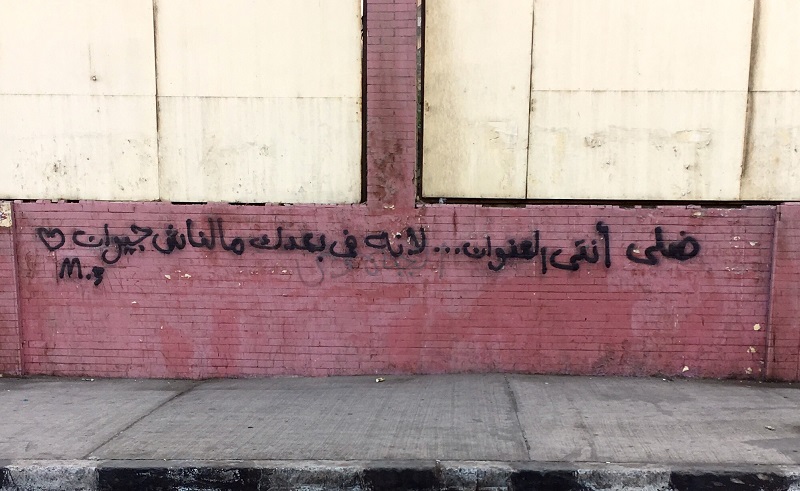 ضلى أنتى العنوان... لانه فى بعدك مالناش جيوان ♡
M.3